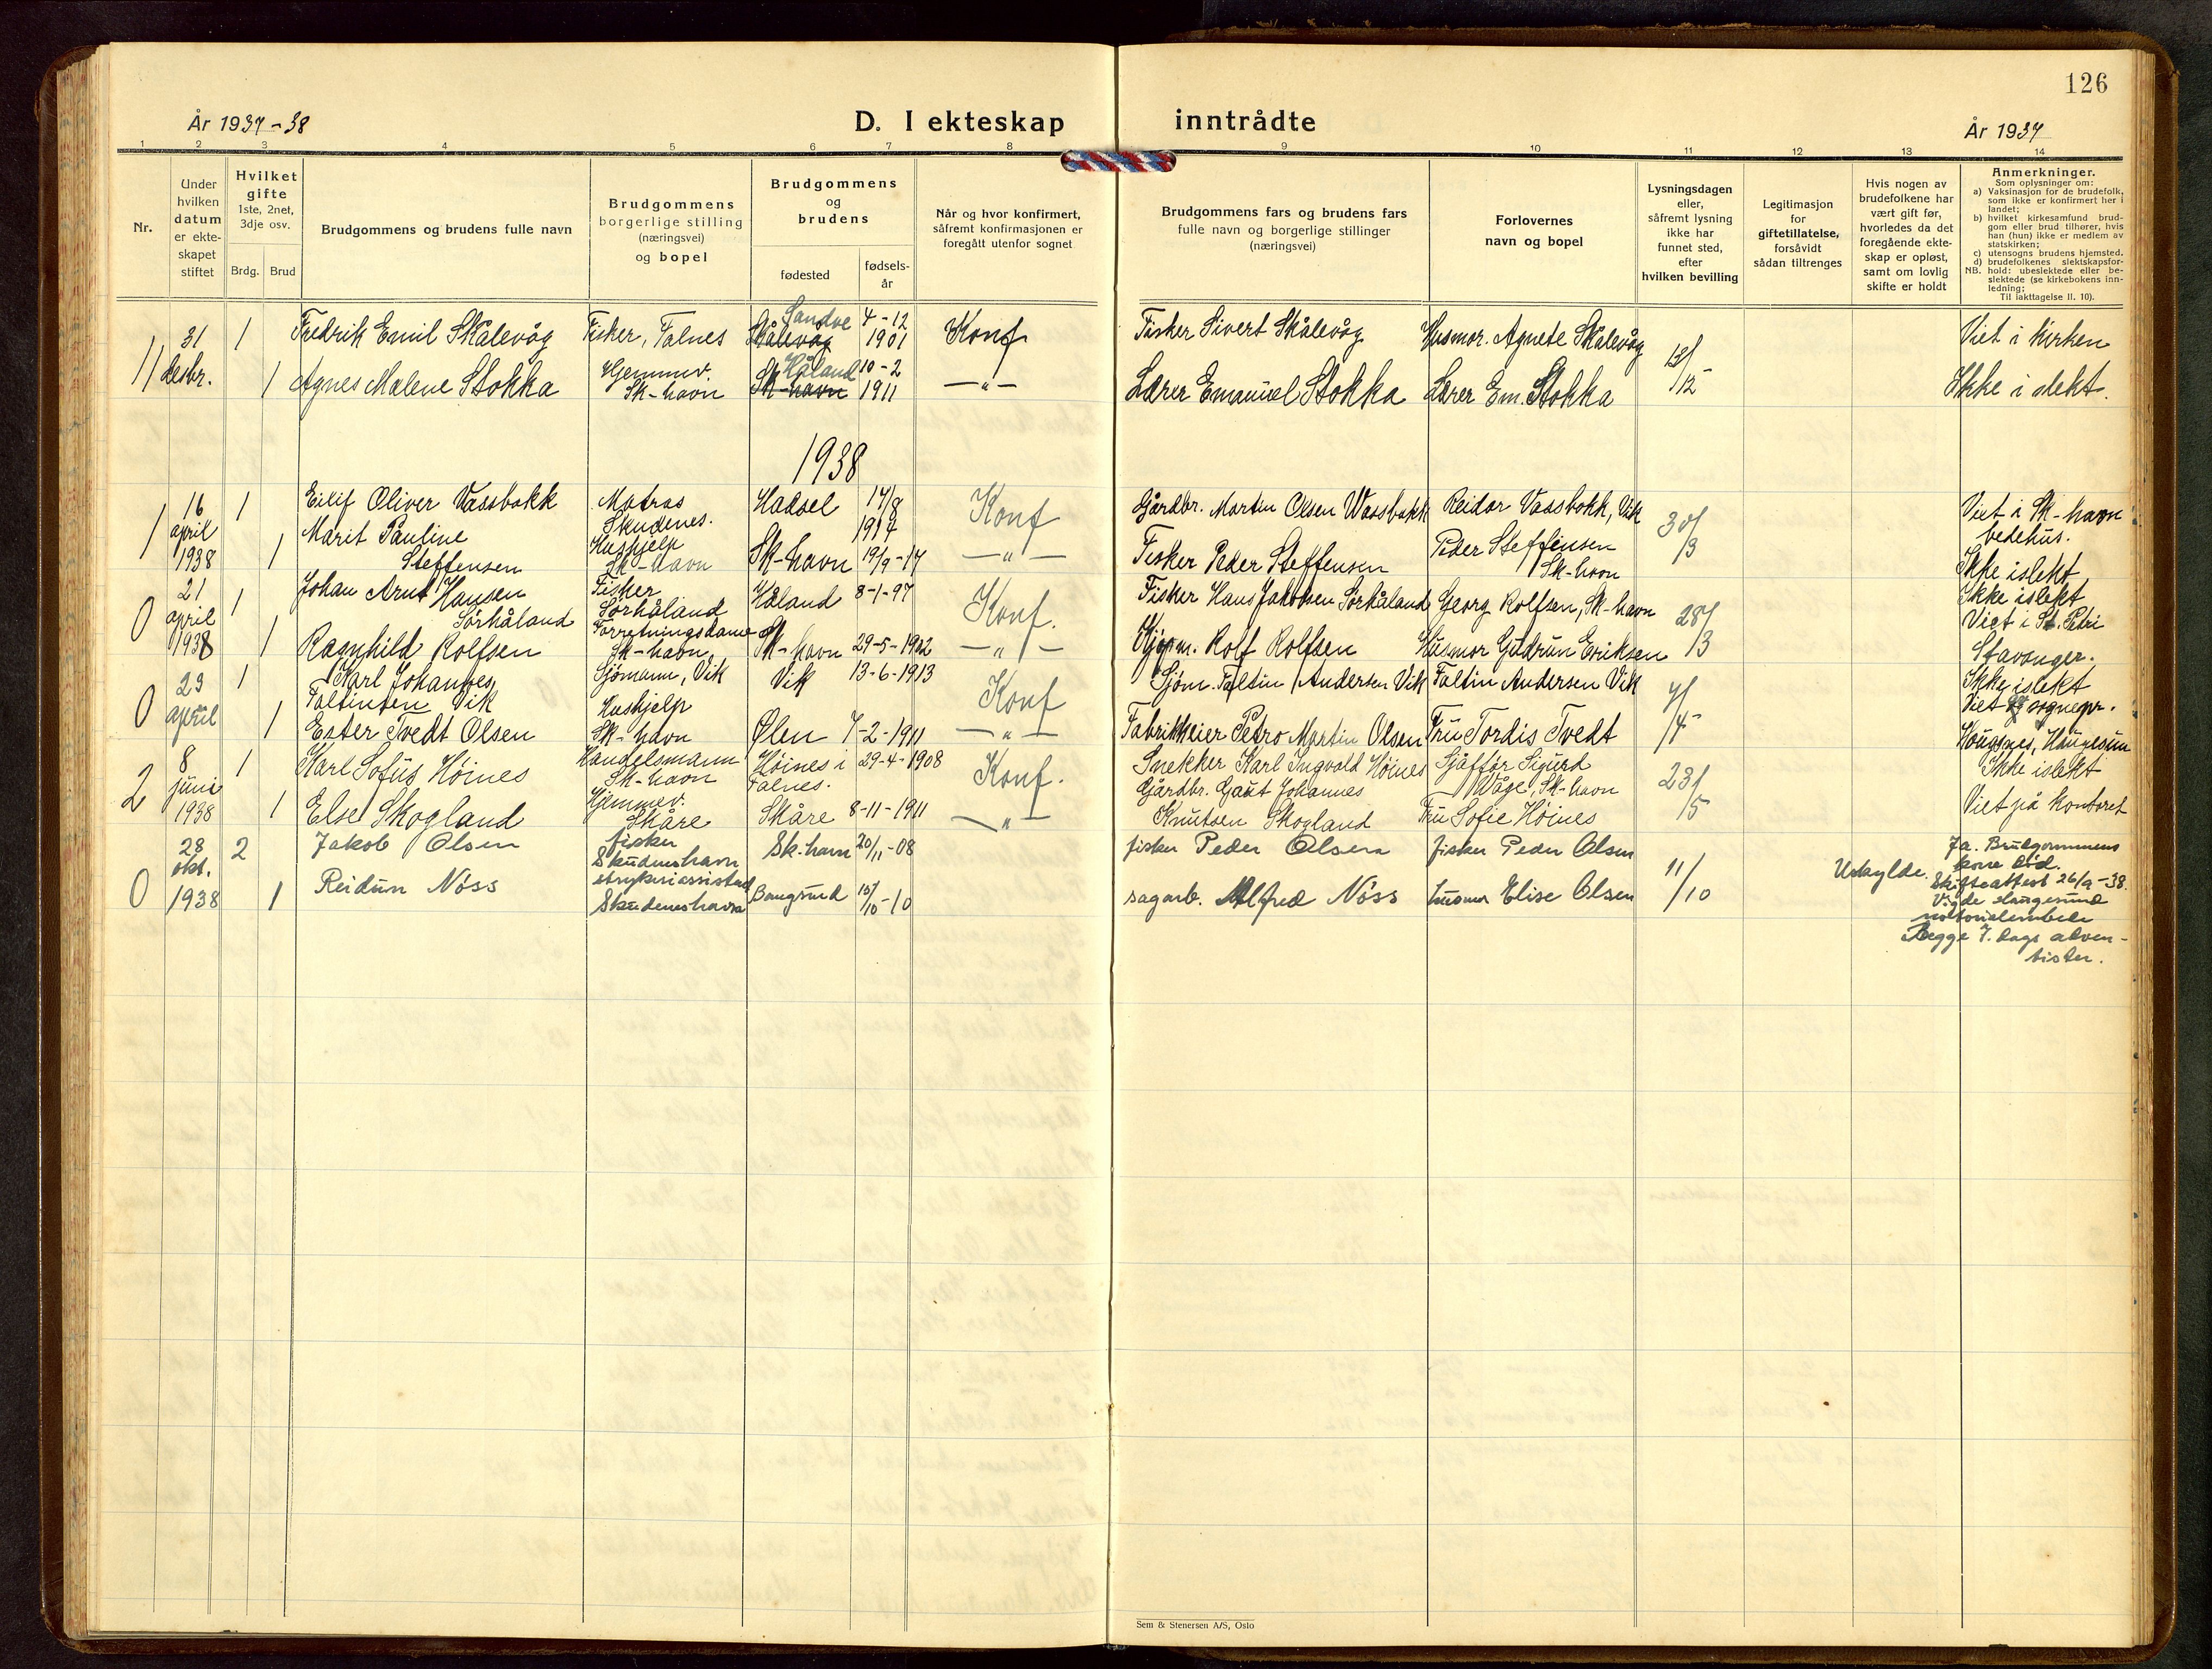 126
År 1937-38
D. I ekteskap inntrådte
År 1937
1 2 3 4 5 6 7 8 9 10 11 12 13 14
Nr.
Under
hvilken
datum
er ekte-
skapet
stiftet
Hvilket
gifte
1ste, 2net,
3dje osv.
Brdg. Brud
Brudgommens og brudens fulle navn
Brudgommens
borgerlige stilling
(næringsvei)
og bopel
Brudgommens
og
brudens
fødested
fødsels-
år
Når og hvor konfirmert,
såfremt konfirmasjonen er
foregått utenfor sognet
Brudgommens fars og brudens fars
fulle navn og borgerlige stillinger
(næringsvei)
Forlovernes
navn og bopel
Lysningsdagen
eller,
såfremt lysning
ikke har
funnet sted,
efter
hvilken bevilling
Legitimasjon
for
giftetillatelse,
forsåvidt
sådan tiltrenges
Hvis nogen av
brudefolkene har
vært gift før,
hvorledes da det
foregående ekte-
skap er opløst,
samt om lovlig
skifte er holdt
Anmerkninger.
Som oplysninger om:
a) Vaksinasjon for de brudefolk,
som ikke er konfirmert her i
landet;
b) hvilket kirkesamfund brud-
gom eller brud tilhører, hvis
han (hun) ikke er medlem av
statskirken;
c) utensogns brudens hjemsted.
d) brudefolkenes slektskapsfor-
NB. hold: ubeslektede eller be-
slektede (se kirkebokens inn-
ledning;
Til iakttagelse II. 10).
11 31 desbr. 1 Fredrik Emil Skålevåg Fisker, Falnes Sandve Skålevåg 4-12 1901 Konf Fisker Sivert Skålevåg Husmor. Agnete Skålevåg 12/12 Viet i kirken
1 Agnes Malene Stokka Hjemmev. Sk-havn Håland Sk-havn 10-2 1911 —"— Lærer Emanuel Stokka Lærer Em. Stokka Ikke i slekt.
1938
1 16 april 1938 1 Eilif Oliver Vassbakk Matros Skudenes. Hadsel 14/8 1917 Konf Gårdbr. Martin Olsen Wassbakk Reidar Vassbakk, Vik 30/3 Viet i Sk-havn bedehus.
1 Marit Pauline Steffensen Hushjelp Sk-havn Sk-havn 19/9-14 —"— Fisker Peder Steffensen Peder Steffensen Sk-havn Ikke islekt
0 21 april 1938 1 Johan Arnt Hansen Sørhåland Fisker Sørhåland Håland 8-1-97 Konf. Fisker Hans Jakobsen Sørhåland Georg Rolfsen, Sk-havn 28/3 Ikke islekt
1 Ragnhild Rolfsen Forretningsdame Sk-havn Sk-havn 29-5-1902 —"— Kjøpm. Rolf Rolfsen Husmor Gudrun Eriksen Viet i St. Petri Stavanger.
0 23 april 1 Karl Johannes Faltinsen Vik Sjømann, Vik Vik 13-6-1913 Konf Sjøm. Faltin Andersen Vik Faltin Andersen Vik 4/4 Ikke islekt
1 Ester Tvedt Olsen Hushjelp Sk-havn Ølen 7-2-1911 —"— Fabrikkeier Petro Martin Olsen Fru Tordis Tvedt Viet sognepr. Hougsnes, Haugesun
2 8 juni 1938 1 Karl Sofus Höines Handelsmann Sk-havn Höines i Falnes. 29-4-1908 Konf. Snekker Karl Ingvald Höines Sjåffør Sigurd Våge, Sk-havn 23/5 Ikke islekt
1 Else Skogland Hjemmev. Skåre Skåre 8-11-1911 —"— Gårdbr. Gaut Johannes Knutsen Skogland Fru Sofie Höines Viet på kontoret
0 28 okt. 1938 2 Jakob Olsen fisker Skudeneshavn Sk.havn 20/11-08 fisker Peder Olsen fisker Peder Olsen 11/10 Ja. Brudgommens kone död. Skifteattest 26/9-38.
1 Reidun Nöss strykeriassistent Skudeneshavn Bangsund 15/10-10 sagarb. Alfred Nöss husmor Elise Olsen Uskylde. Vigde Haugesund notorialembede
Begge 7. dags adven-
tister.
Sem & Stenersen A/S, Oslo